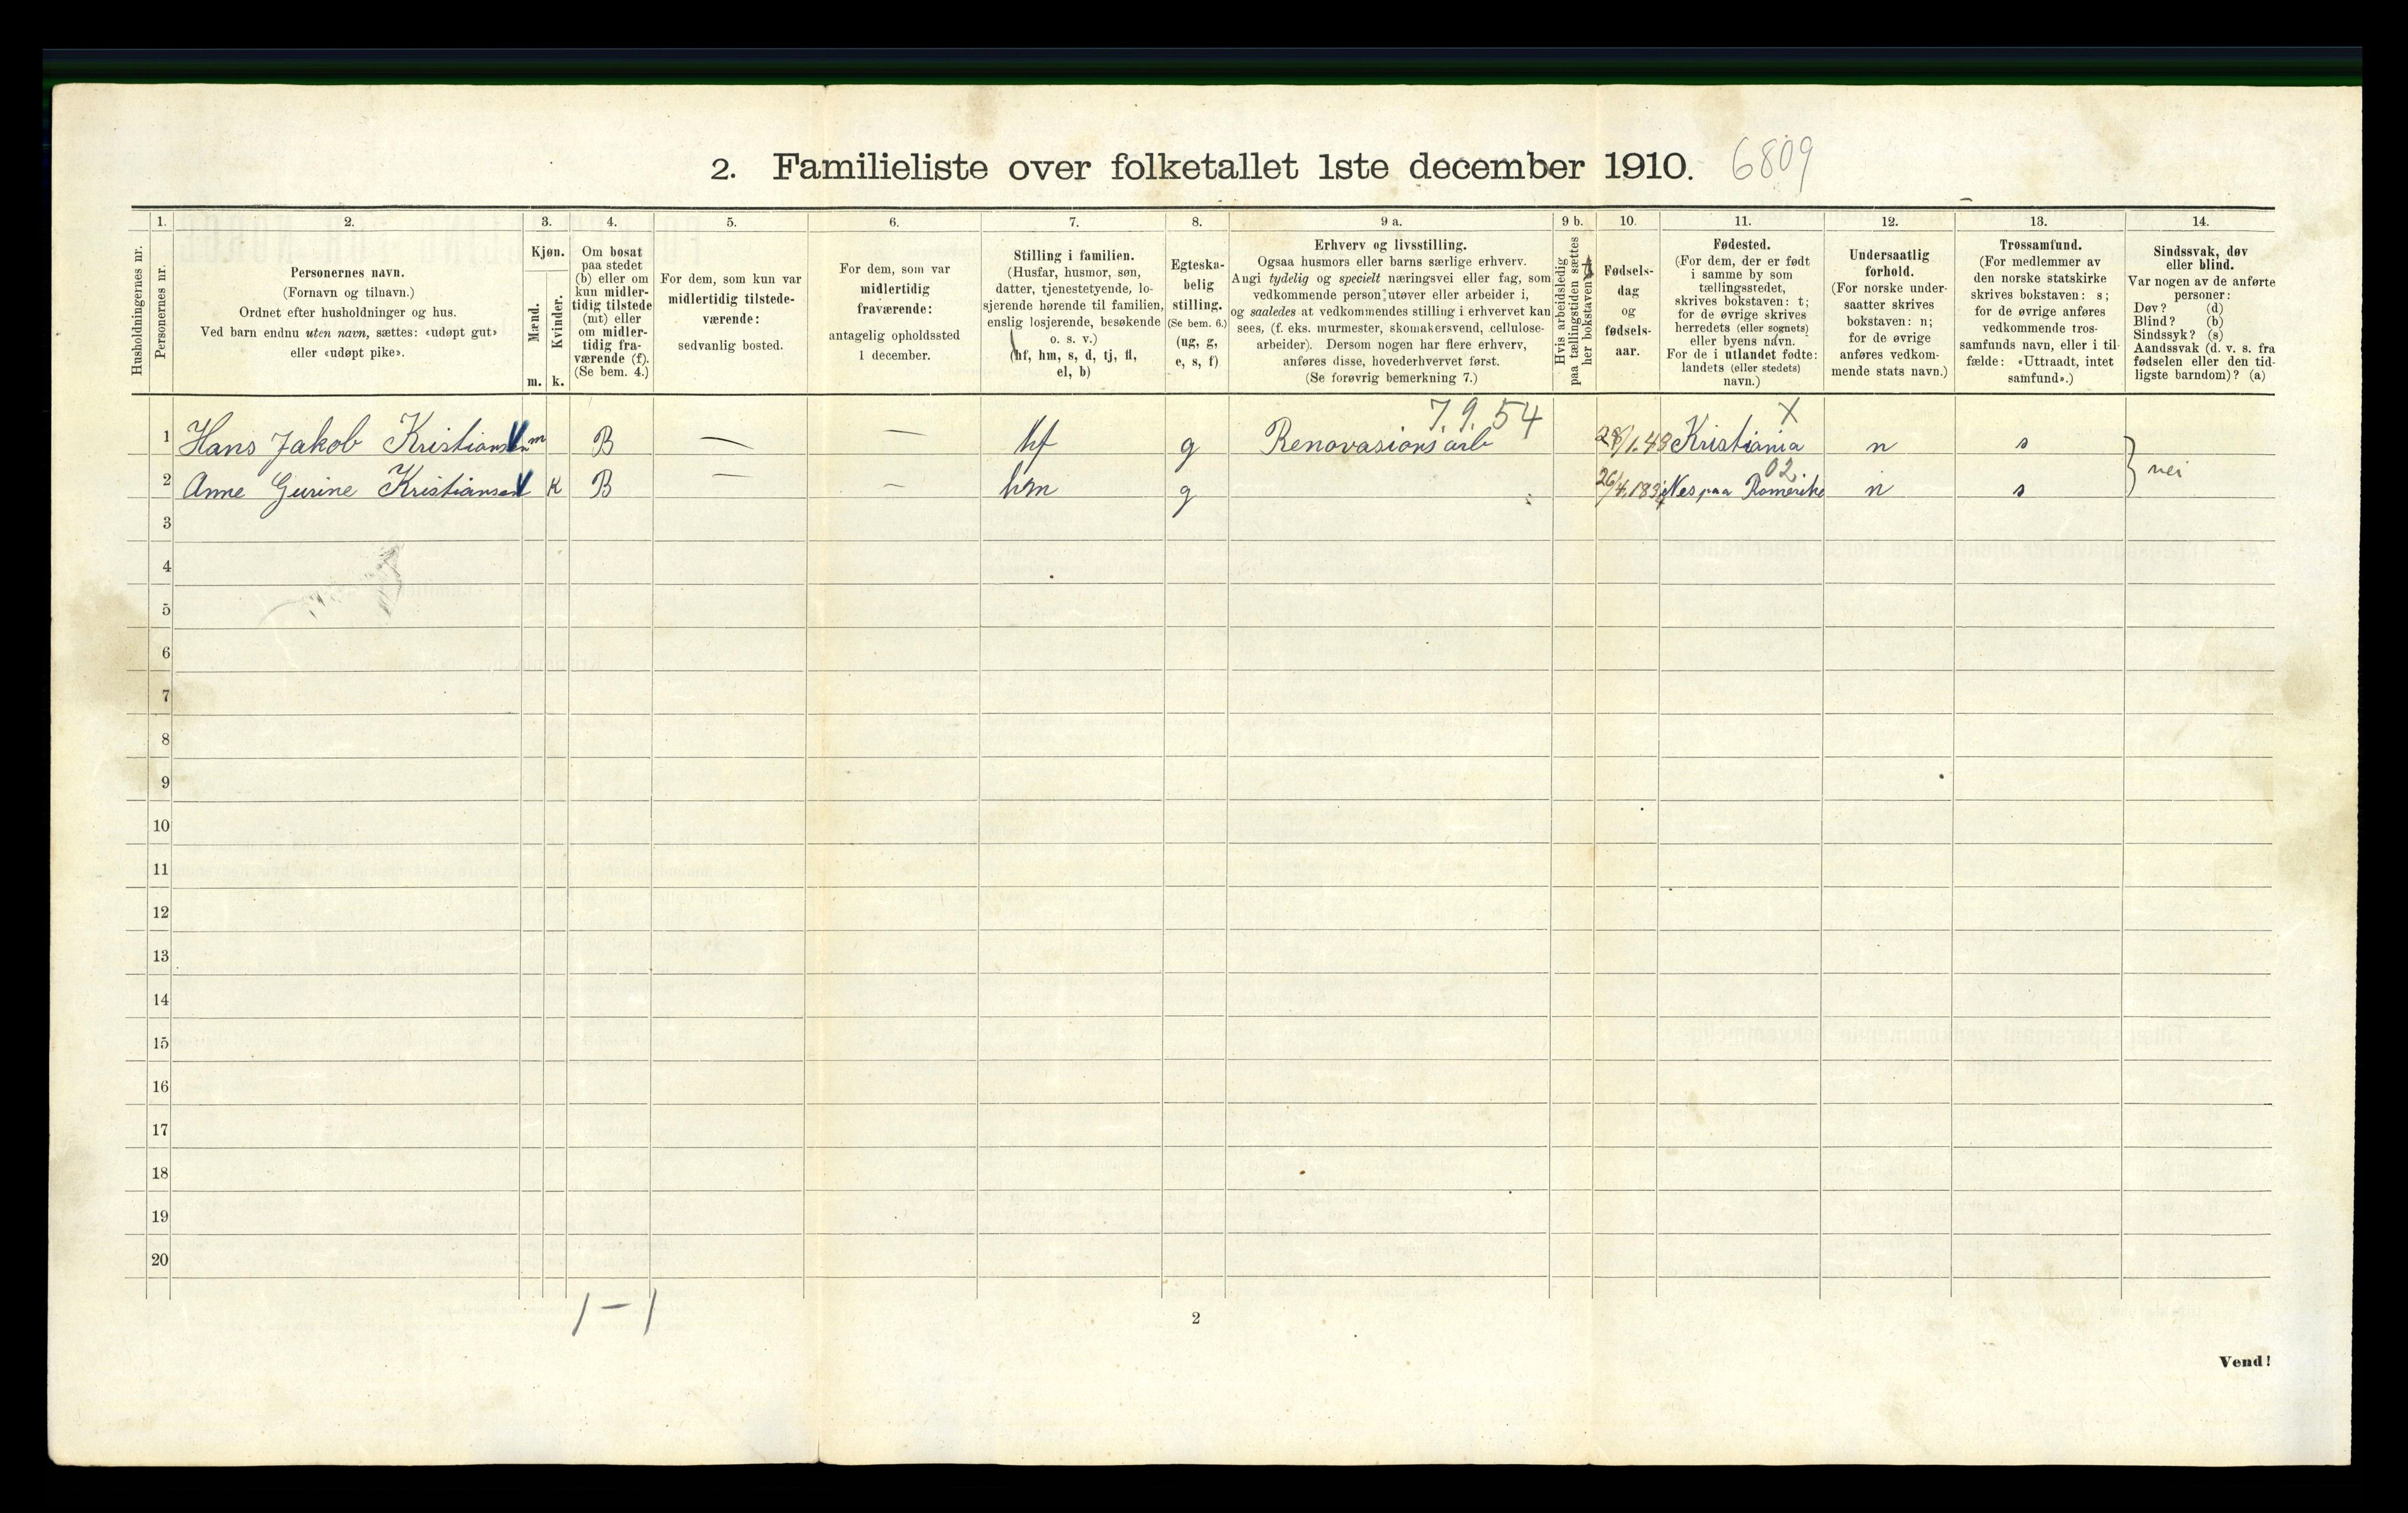 2. Familieliste over folketallet 1ste december 1910. 6809
1. 2. 3. 4. 5. 6. 7. 8. 9 a. 9 b. 10. 11. 12. 13. 14.
Husholdningernes nr.
Personernes nr.
Personernes navn.
(Fornavn og tilnavn.)
Ordnet efter husholdninger og hus.
Ved barn endnu uten navn, sættes: «udøpt gut»
eller «udøpt pike».
Kjøn.
Mænd.
Kvinder.
m. k.
Om bosat
paa stedet
(b) eller om
kun midler-
tidig tilstede
(mt) eller
om midler-
tidig fra-
værende (f).
(Se bem. 4.)
For dem, som kun var
midlertidig tilstede-
værende:
sedvanlig bosted.
For dem, som var
midlertidig
fraværende:
antagelig opholdssted
1 december.
Stilling i familien.
(Husfar, husmor, søn,
datter, tjenestetyende, lo-
sjerende hørende til familien,
enslig losjerende, besøkende
o. s. v.)
(hf, hm, s, d, tj, fl,
el, b)
Egteska-
belig
stilling.
(Se bem. 6.)
(ug, g,
e, s, f)
Erhverv og livsstilling.
Ogsaa husmors eller barns særlige erhverv.
Angi tydelig og specielt næringsvei eller fag, som
vedkommende person utøver eller arbeider i,
og saaledes at vedkommendes stilling i erhvervet kan
sees, (f. eks. murmester, skomakersvend, cellulose-
arbeider). Dersom nogen har flere erhverv,
anføres disse, hovederhvervet først.
(Se forøvrig bemerkning 7.)
Hvis arbeidsledig
paa tællingstiden sættes
her bokstaven
Fødsels-
dag
og
fødsels-
aar.
Fødested.
(For dem, der er født
i samme by som
tællingsstedet,
skrives bokstaven: t;
for de øvrige skrives
herredets (eller sognets)
eller byens navn.
For de i utlandet fødte:
landets (eller stedets)
navn.)
Undersaatlig
forhold.
(For norske under-
saatter skrives
bokstaven: n;
for de øvrige
anføres vedkom-
mende stats navn.)
Trossamfund.
(For medlemmer av
den norske statskirke
skrives bokstaven: s;
for de øvrige anføres
vedkommende tros-
samfunds navn, eller i til-
fælde: «Uttraadt, intet
samfund».)
Sindssvak, døv
eller blind.
Var nogen av de anførte
personer:
Døv? (d)
Blind? (b)
Sindssyk? (s)
Aandssvak (d. v. s. fra
fødselen eller den tid-
ligste barndom)? (a)
7.9.54 X
1 Hans Jakob Kristiansen m B — — hf g Renovasions arb 28/1.43 Kristiania n s
02
2 Anne Gurine Kristiansen K B — — hm g Nes paa Romerike n s
nei
3
4
5
6
7
8
9
10
11
12
13
14
15
16
17
18
19
20
1-1
2
Vend!